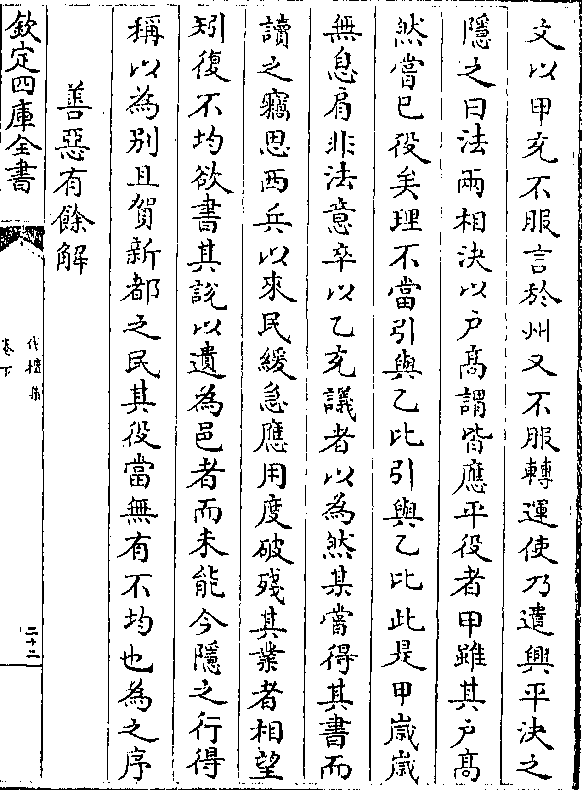 文以甲充不服言於州又不服轉運使乃遣興平決之
隱之曰法兩相決以户髙謂皆應平役者甲雖其户髙
然嘗已役矣理不當引與乙比引與乙比此是甲歳歳
無息肩非法意卒以乙充議者以為然某嘗得其書而
讀之竊思西兵以來民緩急應用度破殘其業者相望
矧復不均欲書其說以遺為邑者而未能今隱之行得
稱以為别且賀新都之民其役當無有不均也為之序
善惡有餘解
欽定四庫全書
伐檀集
卷下
二十二